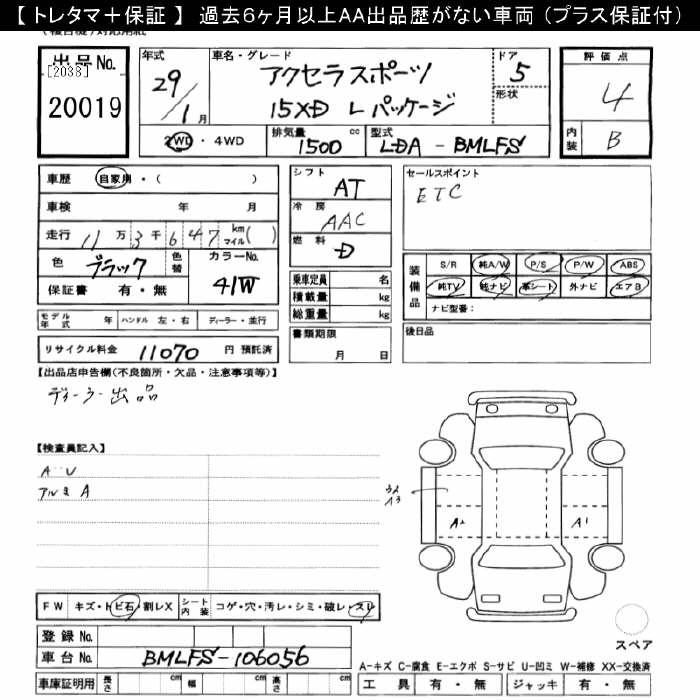 【 トレタマ＋保証 】 過去6ヶ月以上AA出品歴がない車両 (プラス保証付)
出品No. [2038] 20019
年式 29/1月
車名・グレード アクセラスポーツ 15XD Lパッケージ
ドア 5
形状
2WD・4WD
排気量 1500 cc
型式 LDA-BMLFS
評価点 4
内装 B
車歴 自家用・( )
車検 年 月
走行 11万3千647 km マイル( )
色 ブラック 色替 カラーNo. 41W
保証書 有・無
シフト AT
冷房 AAC
燃料 D
乗車定員 名
積載量 kg
総重量 kg
セールスポイント
ETC
装備品 S/R 純A/W P/S P/W ABS
純TV 純ナビ 革シート 外ナビ エアB
ナビ型番：
モデル年式 年 ハンドル 左・右 ディーラー・並行
書類期限 月 日
後日品
リサイクル料金 11070 円 預託済
【出品店申告欄(不良箇所・欠品・注意事項等)】
ディーラー出品
【検査員記入】
A・U
アルミA
A2
A1
FW キズ・トビ石・割レX シート内装 コゲ・穴・汚レ・シミ・破レ・スレ
スペア
登録No.
車台No. BMLFS-106056
A-キズ C-腐食 E-エクボ S-サビ U-凹ミ W-補修 XX-交換済
車庫証明用 長さ cm 幅 cm 高さ cm
工具 有・無 ジャッキ 有・無